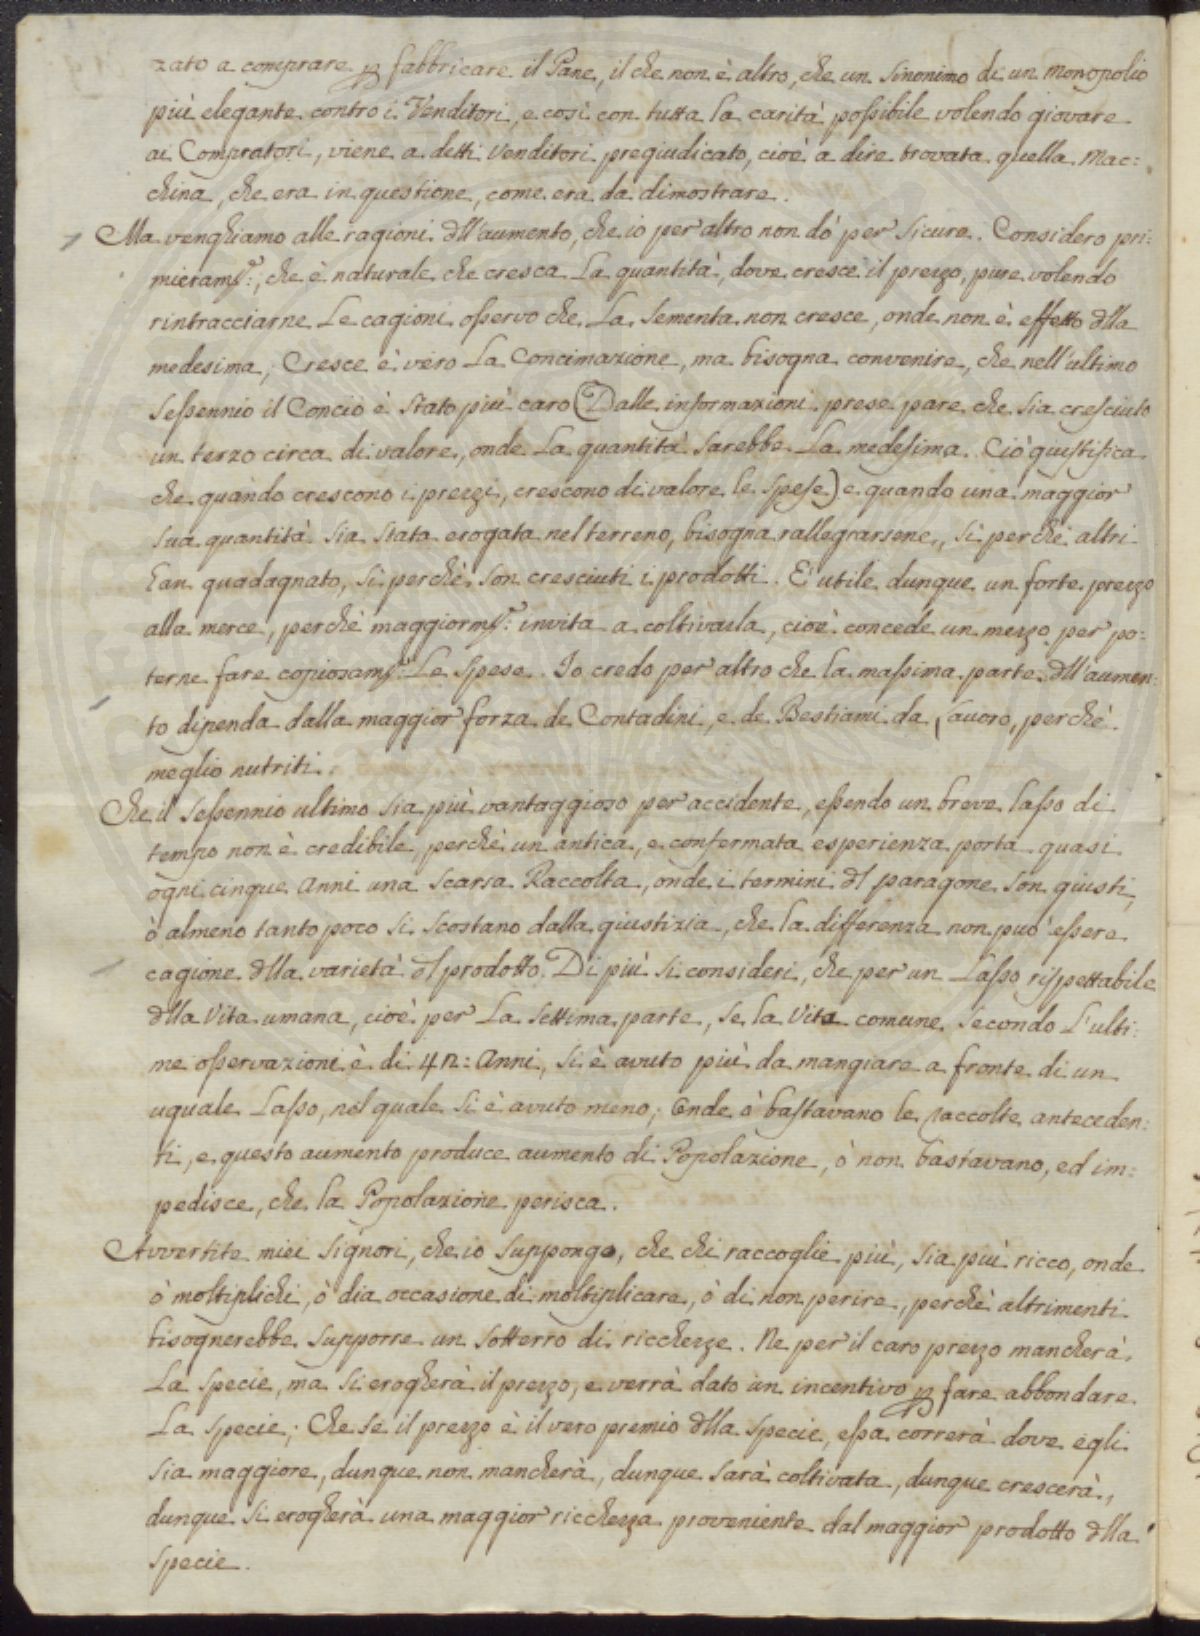 zato a comprare p fabbricare il Pane, il che non è altro, che un sinonimo di un monopolio
più elegante contro i Venditori, e così con tutta la carità possibile volendo giovare
ai Compratori, viene a detti Venditori pregiudicato, cioè a dire trovata quella Mac:
china, che era in questione, come era da dimostrare.
Ma venghiamo alle ragioni dll'aumento, che io per altro non dò per sicuro. Considero pri:
mieram.te:, che è naturale che cresca La quantità, dove cresce il prezzo, pure volendo
rintracciarne Le cagioni osservo che La Sementa non cresce, onde non è effetto dlla
medesima; Cresce è vero La Concimazione, ma bisogna convenire, che nell'ultimo
Sessennio il Concio è stato più caro (Dalle informazioni prese pare che sia cresciuto
un terzo circa di valore, onde La quantità sarebbe La medesima. Ciò giustifica
che quando crescono i prezzi, crescono di valore le spese) e quando una maggior
sua quantità sia stata erogata nel terreno, bisogna rallegrarsene, sì perchè altri
han guadagnato, sì perchè son cresciuti i prodotti. E' utile dunque un forte prezzo
alla merce, perchè maggiorm.te: invita a coltivarla, cioè concede un mezzo per po:
terne fare copiosam.te: Le spese. Io credo per altro che la massima parte dll'aumen:
to dipenda dalla maggior forza de Contadini, e de Bestiami da Lavoro, perchè
meglio nutriti.
Che il Sessennio ultimo sia più vantaggioso per accidente, essendo un breve lasso di
tempo non è credibile, perchè un antica, e confermata esperienza porta quasi
ogni cinque Anni una scarsa Raccolta, onde i termini dl paragone son giusti,
ò almeno tanto poco si scostano dalla giustizia, che la differenza non può essere
cagione dlla varietà dl prodotto. Di più si consideri, che per un Lasso rispettabile
dlla Vita umana, cioè per La settima parte, se la Vita comune secondo L'ulti:
me osservazioni è di 42: Anni, si è avuto più da mangiare a fronte di un
uguale Lasso, nel quale si è avuto meno; Onde ò bastavano le raccolte anteceden:
ti, e questo aumento produce aumento di Popolazione, ò non bastavano, ed im:
pedisce, che la Popolazione perisca.
Avvertite miei Signori, che io suppongo, che chi raccoglie più, sia più ricco, onde
ò moltiplichi, ò dia occasione di moltiplicare, ò di non perire, perchè altrimenti
bisognerebbe supporre un sotterro di ricchezze. Ne per il caro prezzo mancherà
La specie, ma si erogherà il prezzo, e verrà dato un incentivo p fare abbondare
La specie; Che se il prezzo è il vero premio dlla specie, essa correrà dove egli
sia maggiore, dunque non mancherà, dunque sarà coltivata, dunque crescerà,
dunque si erogherà una maggior ricchezza proveniente dal maggior prodotto dlla
specie.